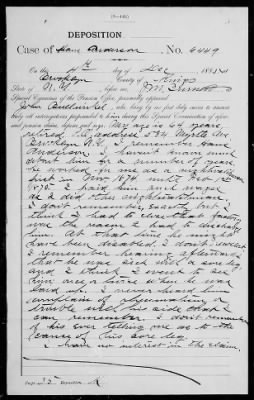 DEPOSITION
Case of Hans Anderson, No. 6449
On this day of Dec, 1891, at
Brooklyn, County of Kings
State of N.Y., before me,
Special Examiner of the Pension Office, personally appeared
John, who, being by me first duly sworn to answer
truly all interrogatories propounded to him during this Special Examination of afore-
said pension claim, deposes and says: My age is 64 years
retired. P.O. address 34 Myrtle Ave
Brooklyn N.Y. I remember Hans
Anderson. I havent known much
about him for a number of years
he worked for me as a
first in Nov 1874 until Nov
1875. I paid him and wages
as I did the
I don't remember exactly but I
think I had to close that factory
was the reason I had to discharge
him. At that time he may not
have been disabled. I don't recollect
I remember hearing afterwards
that he was sick with a sore leg
and I think I went to see
him once or twice when he was
laid up. I never heard him
complain of rheumatism or
trouble with his side that I
can remember. I don't remember
of his ever telling me as to the
cause of his sore leg.
I have no interest in the claim.
Deposition